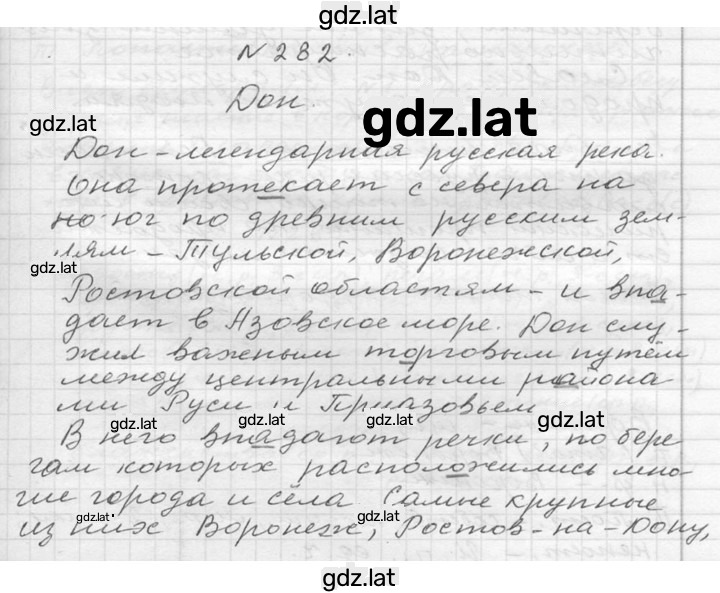 gdz.lat
N 282.
Дон.
gdz.lat
gdz.lat
Дон - легендарная русская река.
Она протекает с севера на
на юг по древним русским зем-
лям - Тульской, Воронежской,
gdz.lat
Ростовской областям - и впа-
дает в Азовское море. Дон слу-
жил важным торговым путём
между центральными района
ми Руси и Приазовьем
gdz.lat
gdz.lat
gdz.lat
В него впадают речки, по бере
гам которых расположились мно-
гие города и сёла. Самые крупные
gdz.lat
gdz.lat
из них Воронеж, Ростов-на-Дону,
gdz.lat